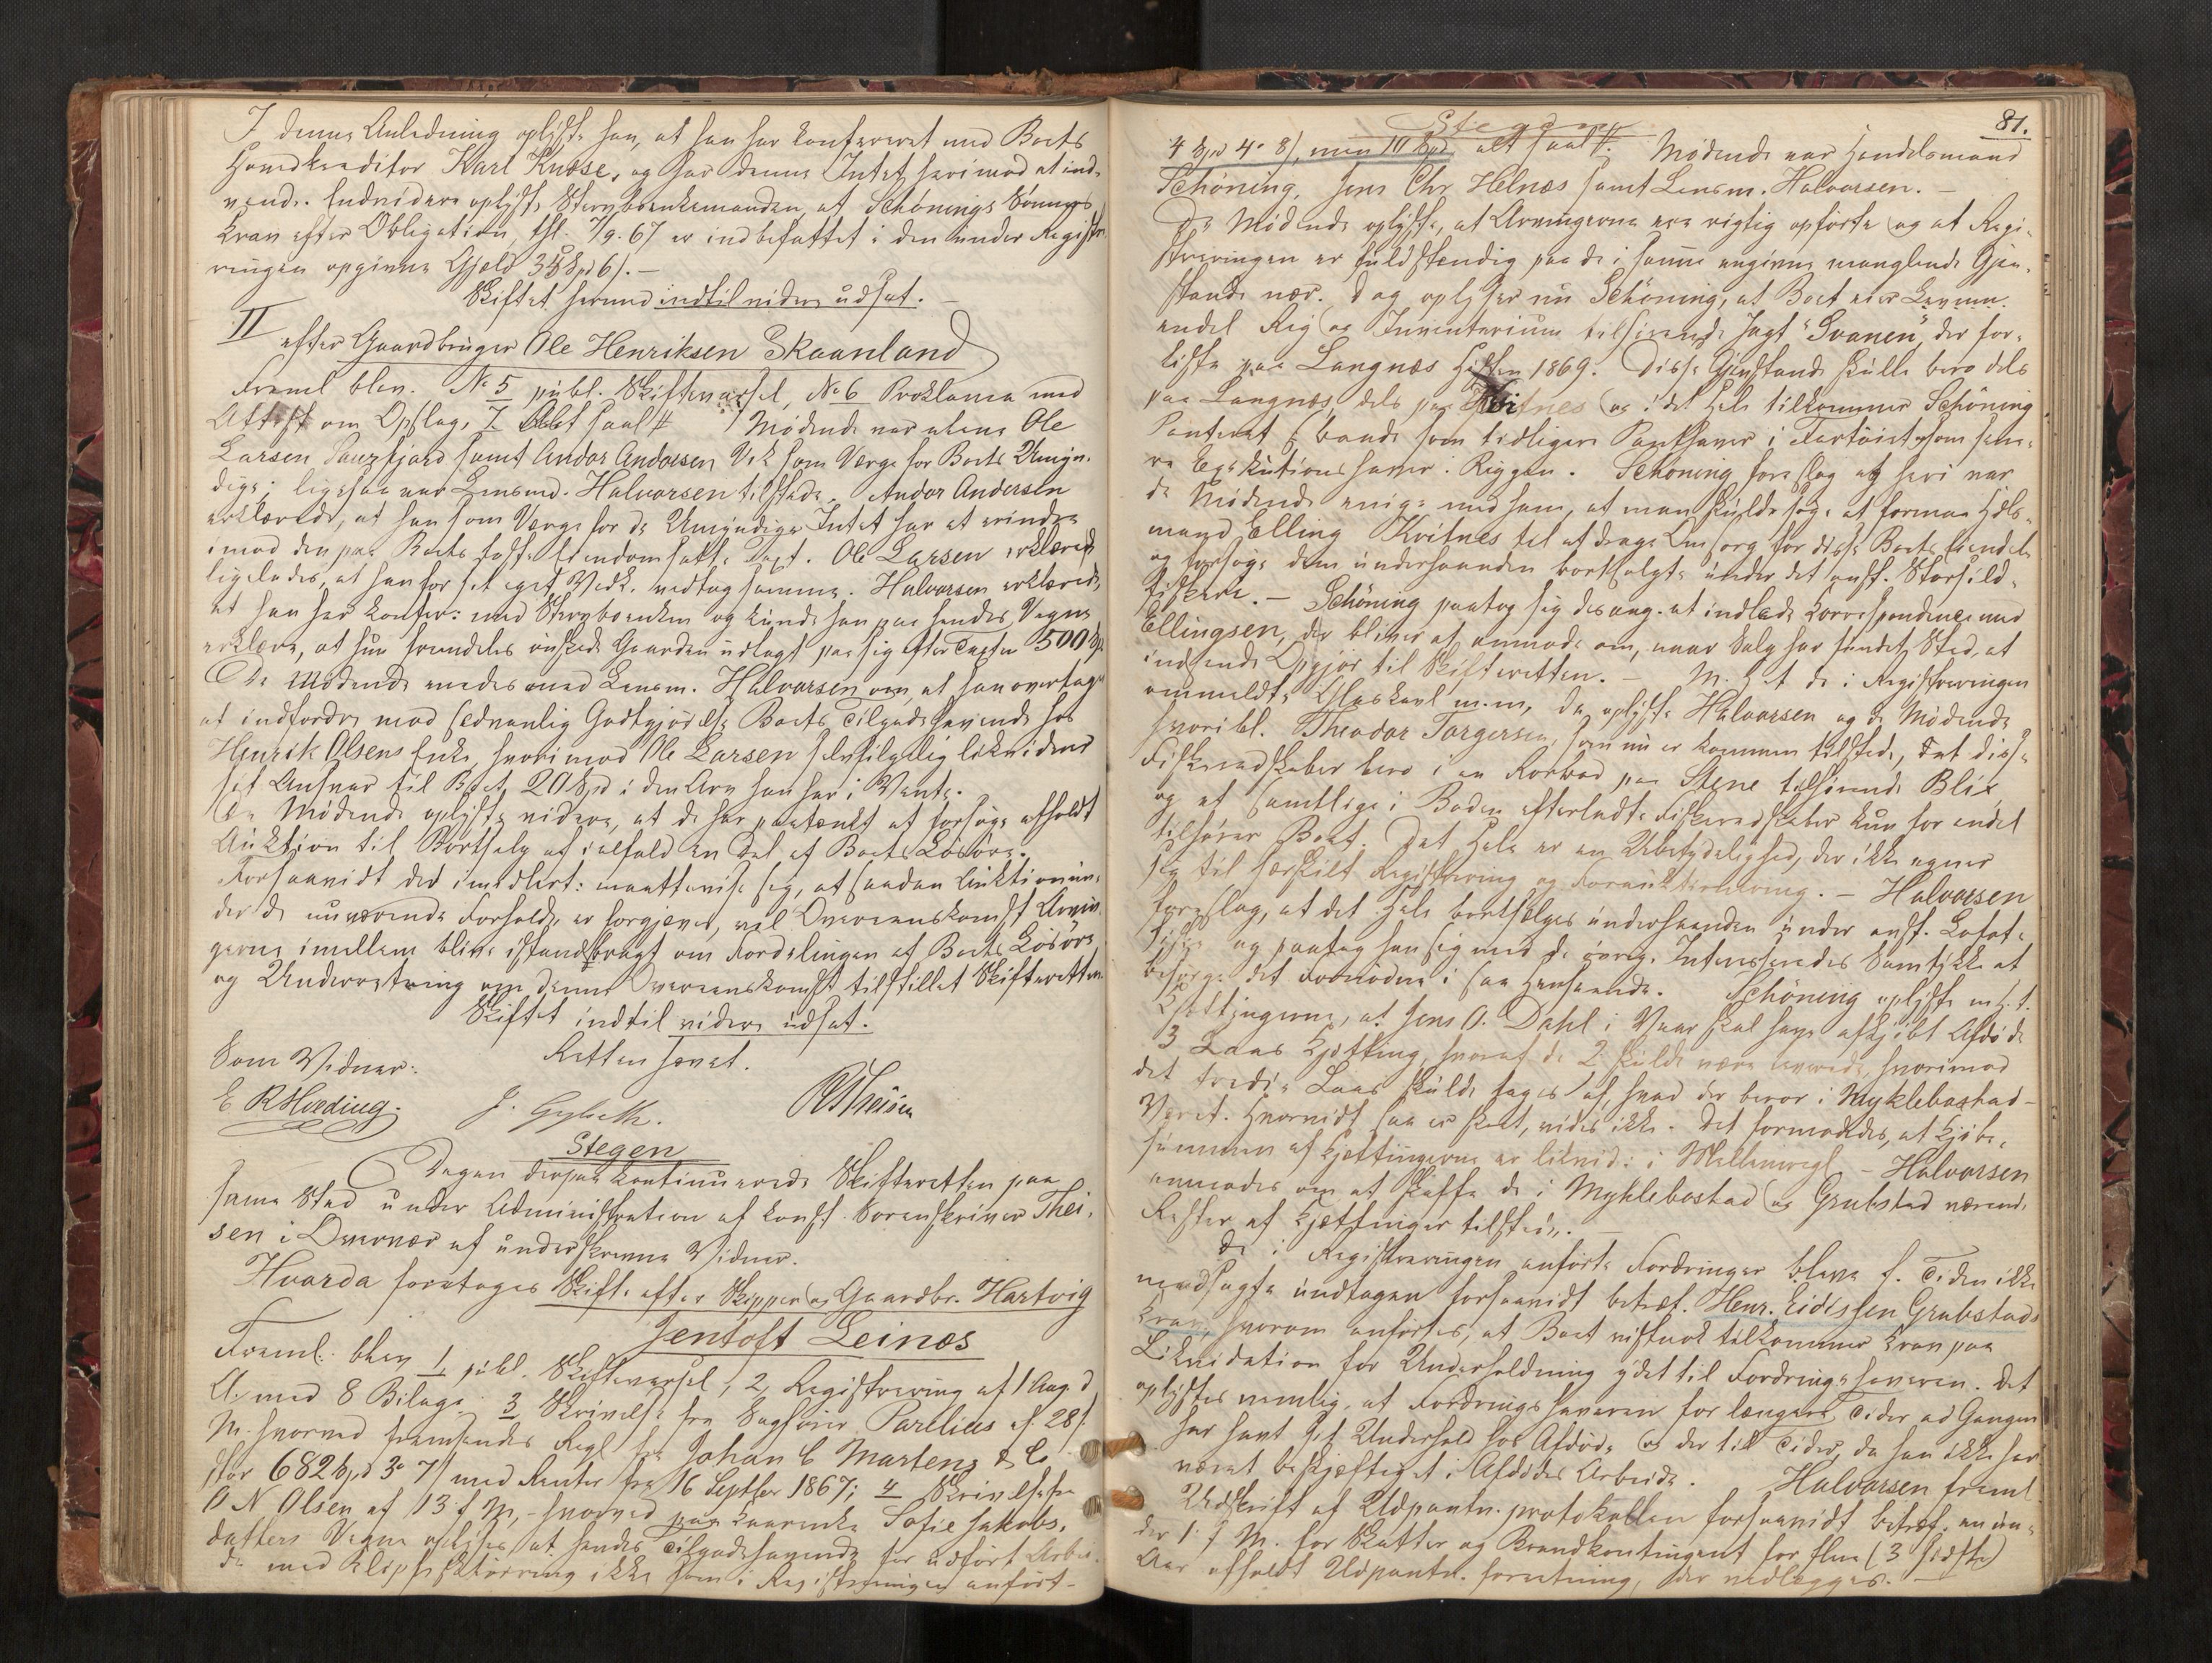 I denne Anledning oplyste han, at han har konfereret med Boets
Hovedkreditor Karl Kusse, og har denne Intet herimod at ind-
vende. Endvidere oplyste Stervboenkemanden at Schönings Sønners
Krav efter Obligation, thl. 7/9.67 er indbefattet i den under Registre-
ringen opgivne Gjeld 35 Spd 6 /. —
Skiftet herved indtil videre udsat. —
II
efter Gaardbruger Ole Henriksen Skaanland
Freml. blev. No 5 publ. Skiftevarsel, No 6 Proklama med
Attest om Opslag, 7 Alt saal # Mødende var alene Ole
Larsen Saurfjord samt Andor Andersen Vik som Værge for Boets Umyn-
dige; ligesaa var Lensmd. Halvorsen tilstede. Andor Andersen
erklærede, at han som Værge for de Umyndige Intet har at erindre
imod den paa Boets faste Eiendom satte Taxt. Ole Larsen erklærede
ligeledes, at han for sit eget Vedk. vedtog samme. Halvorsen erklærede,
at han har konfer: med Stervboenken og kunde han paa hendes Vegne
erklære, at hun fremdeles ønskede Gaarden udlagt paa sig efter Taxten 500 Spd
De Mødende enedes med Lensm. Halvorsen om, at han overtager
at indfordre mod sedvanlig Godtgjørelse Boets Tilgodehavende hos
Henrik Olsens Enke, hvorimod Ole Larsen selvfølgelig likviderer
sit Ansvar til Boet 20 Spd i den Arv han har i Vente.
De Mødende oplyste videre, at de har paatænkt at forsøge afholdt
Auktion til Bortsalg af ialfald en Del af Boets Løsøre.
Forsaavidt det imidlert: maatte vise sig, at saadan Auktion un-
der de nuværende Forholde er forgjæves, vil Overenskomst Arvin-
gerne imellem blive istandbragt om Fordelingen af Boets Løsøre
og Underretning om denne Overenskomst tilstillet Skifteretten
Skiftet indtil videre udsat.
Retten hævet.
Som Vidner:
E R Hveding. J. Gylseth. RTheisen
Stegen
Dagen derpaa kontinuerede Skifteretten paa
samme Sted under Administration af konst. Sorenskriver Thei-
sen i Overvær af underskrevne Vidner.
Hvorda foretoges Skifte efter Skipper og Gaardbr. Hartvig
Jentoft Leines
Freml: blev 1, publ. Skiftevarsel, 2, Registrering af 1 Aug. d
A. med 8 Bilage; 3 Skrivelse fra Sagfører Parelius af 28/
M. hvorved fremsendes Regl fra Johan C Martens & Co
stor 682 Spd 3 o 7 / med Renter fra 16 Septber 1867; 4 Skrivelse fra
O N Olsen af 13 f M, - hvorved paa Kaarenke Sofie Jakobs-
datters Vegne oplyses at hendes Tilgodehavende for udført Arbei-
de med Klipfisktørring ikke som i Registreringen anført -
81.
Stegen
4 Spd 4 o 8 /, men 10 Spd alt saal #. Mødende var Handelsmand
Schöning, Jens Chr. Helnæs samt Lensm. Halvorsen. —
De Mødende oplyste, at Arvingerne ere rigtig opførte og at Regi-
streringen er fuldstændig paa de i samme angivne manglende Gjen-
stande nær. Dog oplyser nu Schöning, at Boet eier
endel Rig og Inventarium tilhørende Jagt "Svanen", der for-
liste paa Langnæs Høsten 1869. Disse Gjenstande skulle bero dels
paa Langnæs dels paa Kvitnes og i det Hele tilkommer Schöning
Panteret baade som tidligere Panthaver i Fartøiet som sene-
re Exekutionshaver i Riggen. Schöning foreslog og heri var
de Mødende enige med ham, at man skulde søge at formaa Hdls-
mand Elling Kvitnes til at drage Omsorg for disse Boets Eiendele
og forsøge dem underhaanden bortsolgte under det anst. Storsild-
fiskeri. — Schöning paatog sig desang. at indlede Korrespondence med
Ellingsen, der bliver at anmode om, naar Salg har fundet Sted, at
indsende Opgjør til Skifteretten. — M. H. t de i Registreringen
ommeldte Glaskavl m.m, da oplyste Halvorsen og de Mødende
hvoribl. Theodor Torgersen, som nu er kommen tilstede, at disse
Fiskeredskaber bero i en Rorbod paa Stene tilhørende Blix
og at samtlige i Boden efterladte Fiskeredskaber kun for endel
tilhører Boet. Det Hele er en Ubetydelighed, der ikke egner
sig til særskilt Registrering og Forauktionering. — Halvorsen
foreslog, at det Hele bortsælges underhaanden under anst. Lofot-
fiske og paatog han sig med de øvrige Interesseredes Samtykke at
besørge det Fornødne i saa Henseende. Schöning oplyste m.H.t.
Kjættingerne, at Jens A. Dahl i Vaar skal have afkjøbt Afdøde
3 Laas Kjetting, hvoraf de 2 skulde være leverede, hvorimod
det tredie Laas skulde tages af, hvad der beror i Myklebostad -
Været. Hvorvidt saa er skeet, vides ikke. Det formodedes, at Kjøbe-
summen af Kjettingerne er likvid: i Mellemregl. — Halvorsen
anmodes om at skaffe de i Myklebostad og Grubstad værende
Rester af Kjættinger tilstede. —
De i Registreringen anførte Fordringer bleve f. Tiden ikke
modsagte undtagen forsaavidt betræf. Henr. Eidissen Grubstads
Krav, hvorom anførtes, at Boet vistnok tilkommer Krav paa
Likvidation for Underholdning ydet til Fordringshaveren. Det
oplystes nemlig, at Fordringshaveren for længere Tider ad Gangen
har havt sit Underhold hos Afdøde og der til Tider, da han ikke har
været beskjæftiget i Afdødes Arbeide. Halvorsen freml.
Udskrift af Udpantn. protokollen forsaavidt betræf. en un-
der 1 f M. for Skatter og Brandkontingent for flere (3 sidste)
Aar afholdt Udpantn. forretning, der vedlægges. —